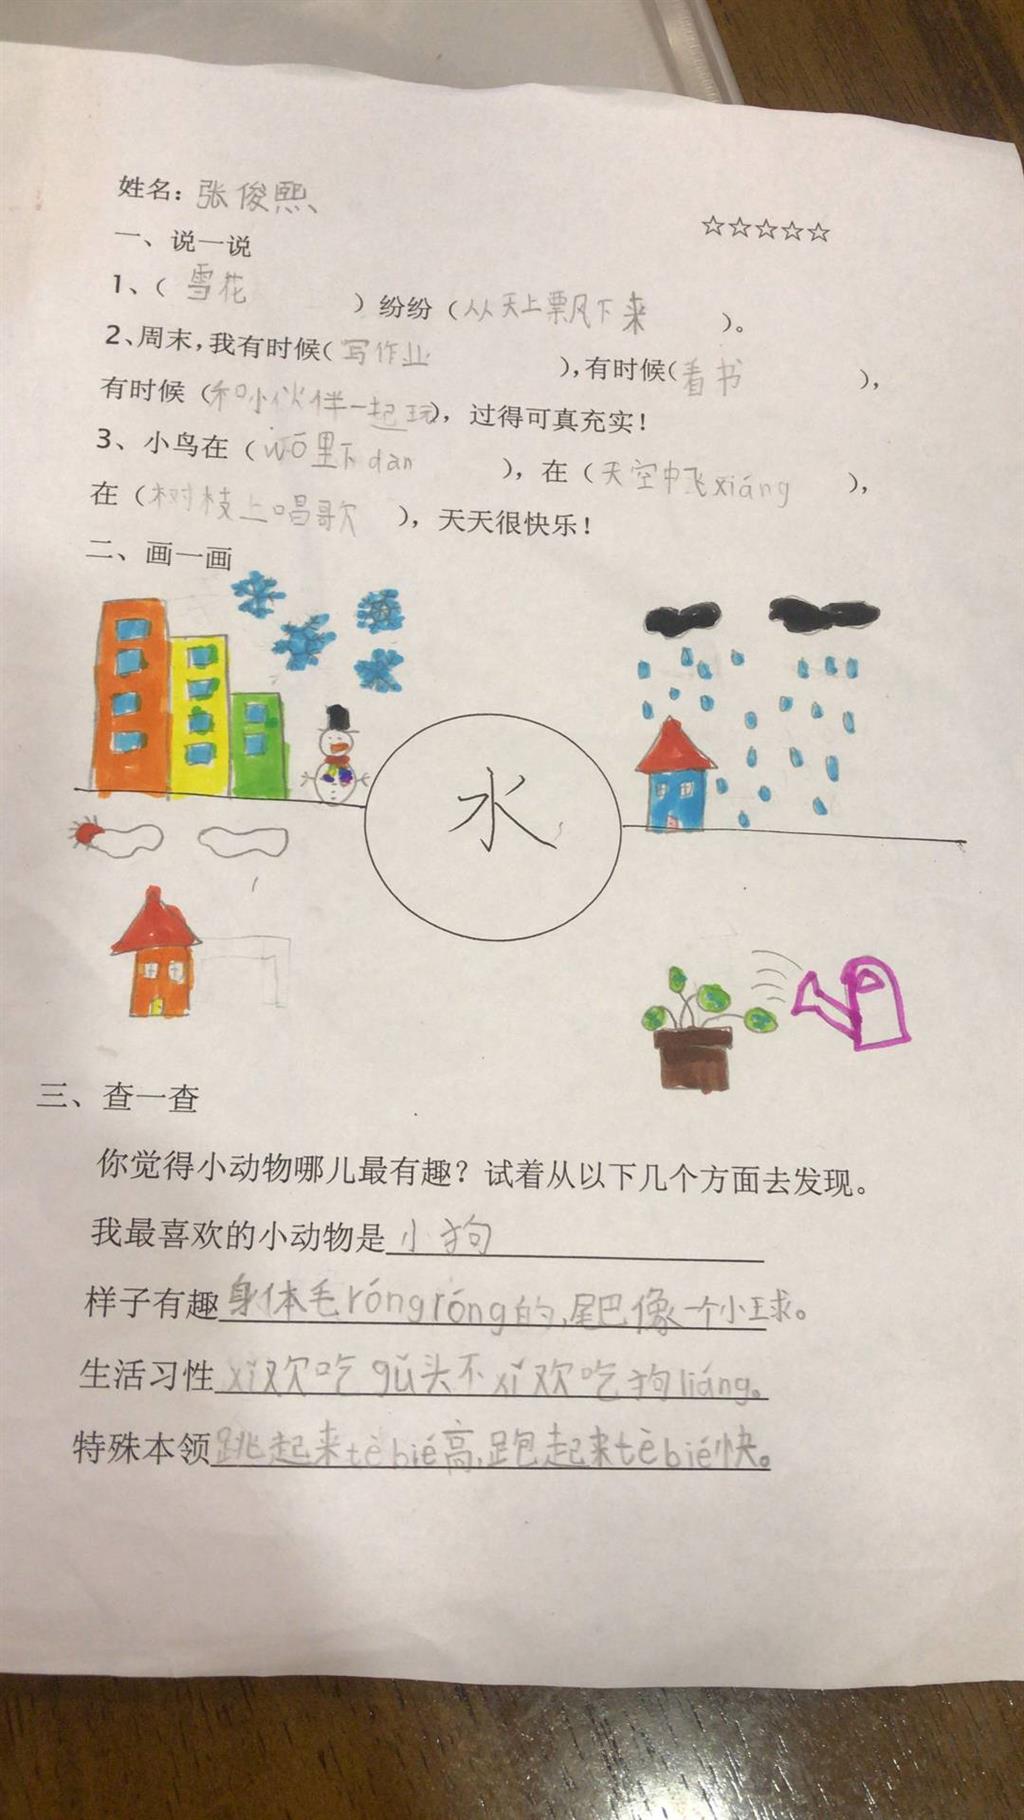 姓名：张俊熙
☆☆☆☆☆
一、说一说
1、（雪花）纷纷（从天上飘下来）。
2、周末，我有时候（写作业），有时候（看书），
有时候（和小伙伴一起玩），过得可真充实！
3、小鸟在（wō里下dàn），在（天空中飞xiáng），
在（树枝上唱歌），天天很快乐！
二、画一画
水
三、查一查
你觉得小动物哪儿最有趣？试着从以下几个方面去发现。
我最喜欢的小动物是小狗
样子有趣身体毛róngróng的，尾巴像一个小球。
生活习性xǐ欢吃gǔ头不xǐ欢吃狗liáng。
特殊本领跳起来tèbié高，跑起来tèbié快。